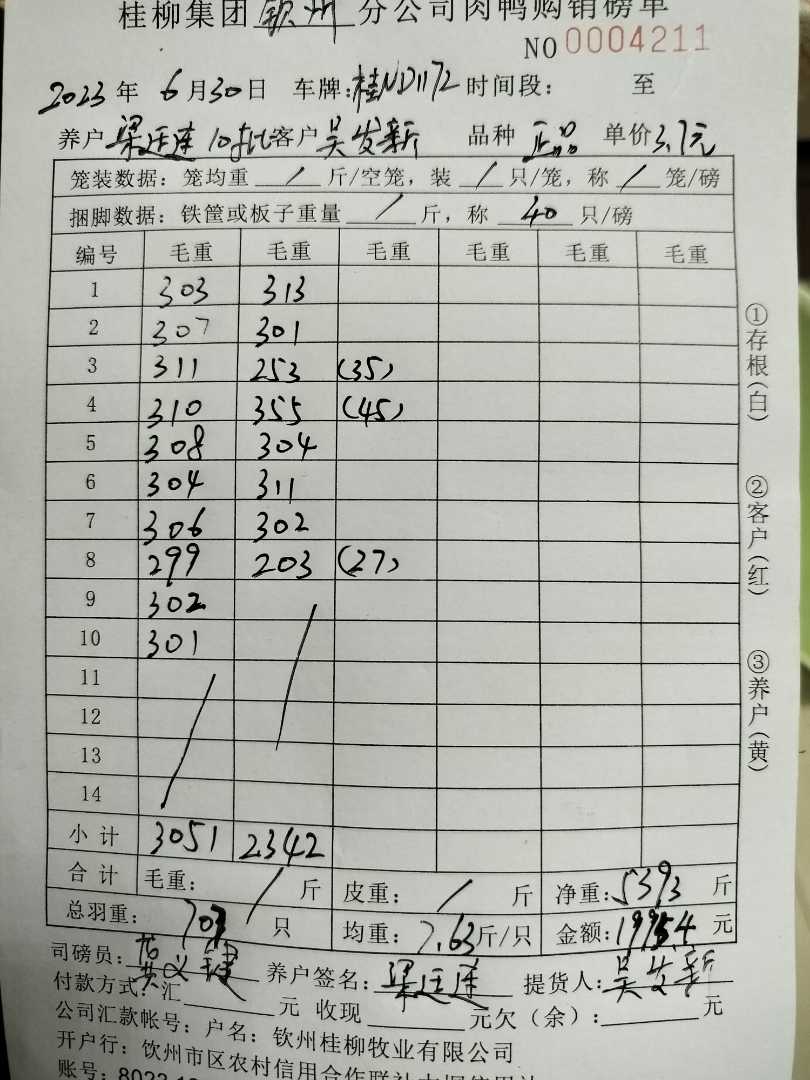 桂柳集团 钦州 分公司肉鸭购销磅单
NO 0004211
2023 年 6 月 30 日 车牌:桂ND1172 时间段: 至
养户 梁廷连 10 客户 吴发新 品种 正品 单价 3.7元
笼装数据: 笼均重 / 斤/空笼, 装 / 只/笼, 称 / 笼/磅
捆脚数据: 铁筐或板子重量 / 斤, 称 40 只/磅
编号 毛重 毛重 毛重 毛重 毛重 毛重
1 303 313
2 307 301
3 311 253 (35)
4 310 355 (45)
5 308 304
6 304 311
7 306 302
8 299 203 (27)
9 302
10 301
11
12
13
14
小计 3051 2342
合计 毛重: / 斤 皮重: / 斤 净重: 5393 斤
总羽重: 707 只 均重: 7.63 斤/只 金额: 19954 元
司磅员: 养户签名: 梁廷连 提货人: 吴发新
付款方式: 汇 元 收现 元欠(余): 元
公司汇款帐号: 户名: 钦州桂柳牧业有限公司
开户行: 钦州市区农村信用合作联社
账号: 8022
①存根(白)
②客户(红)
③养户(黄)